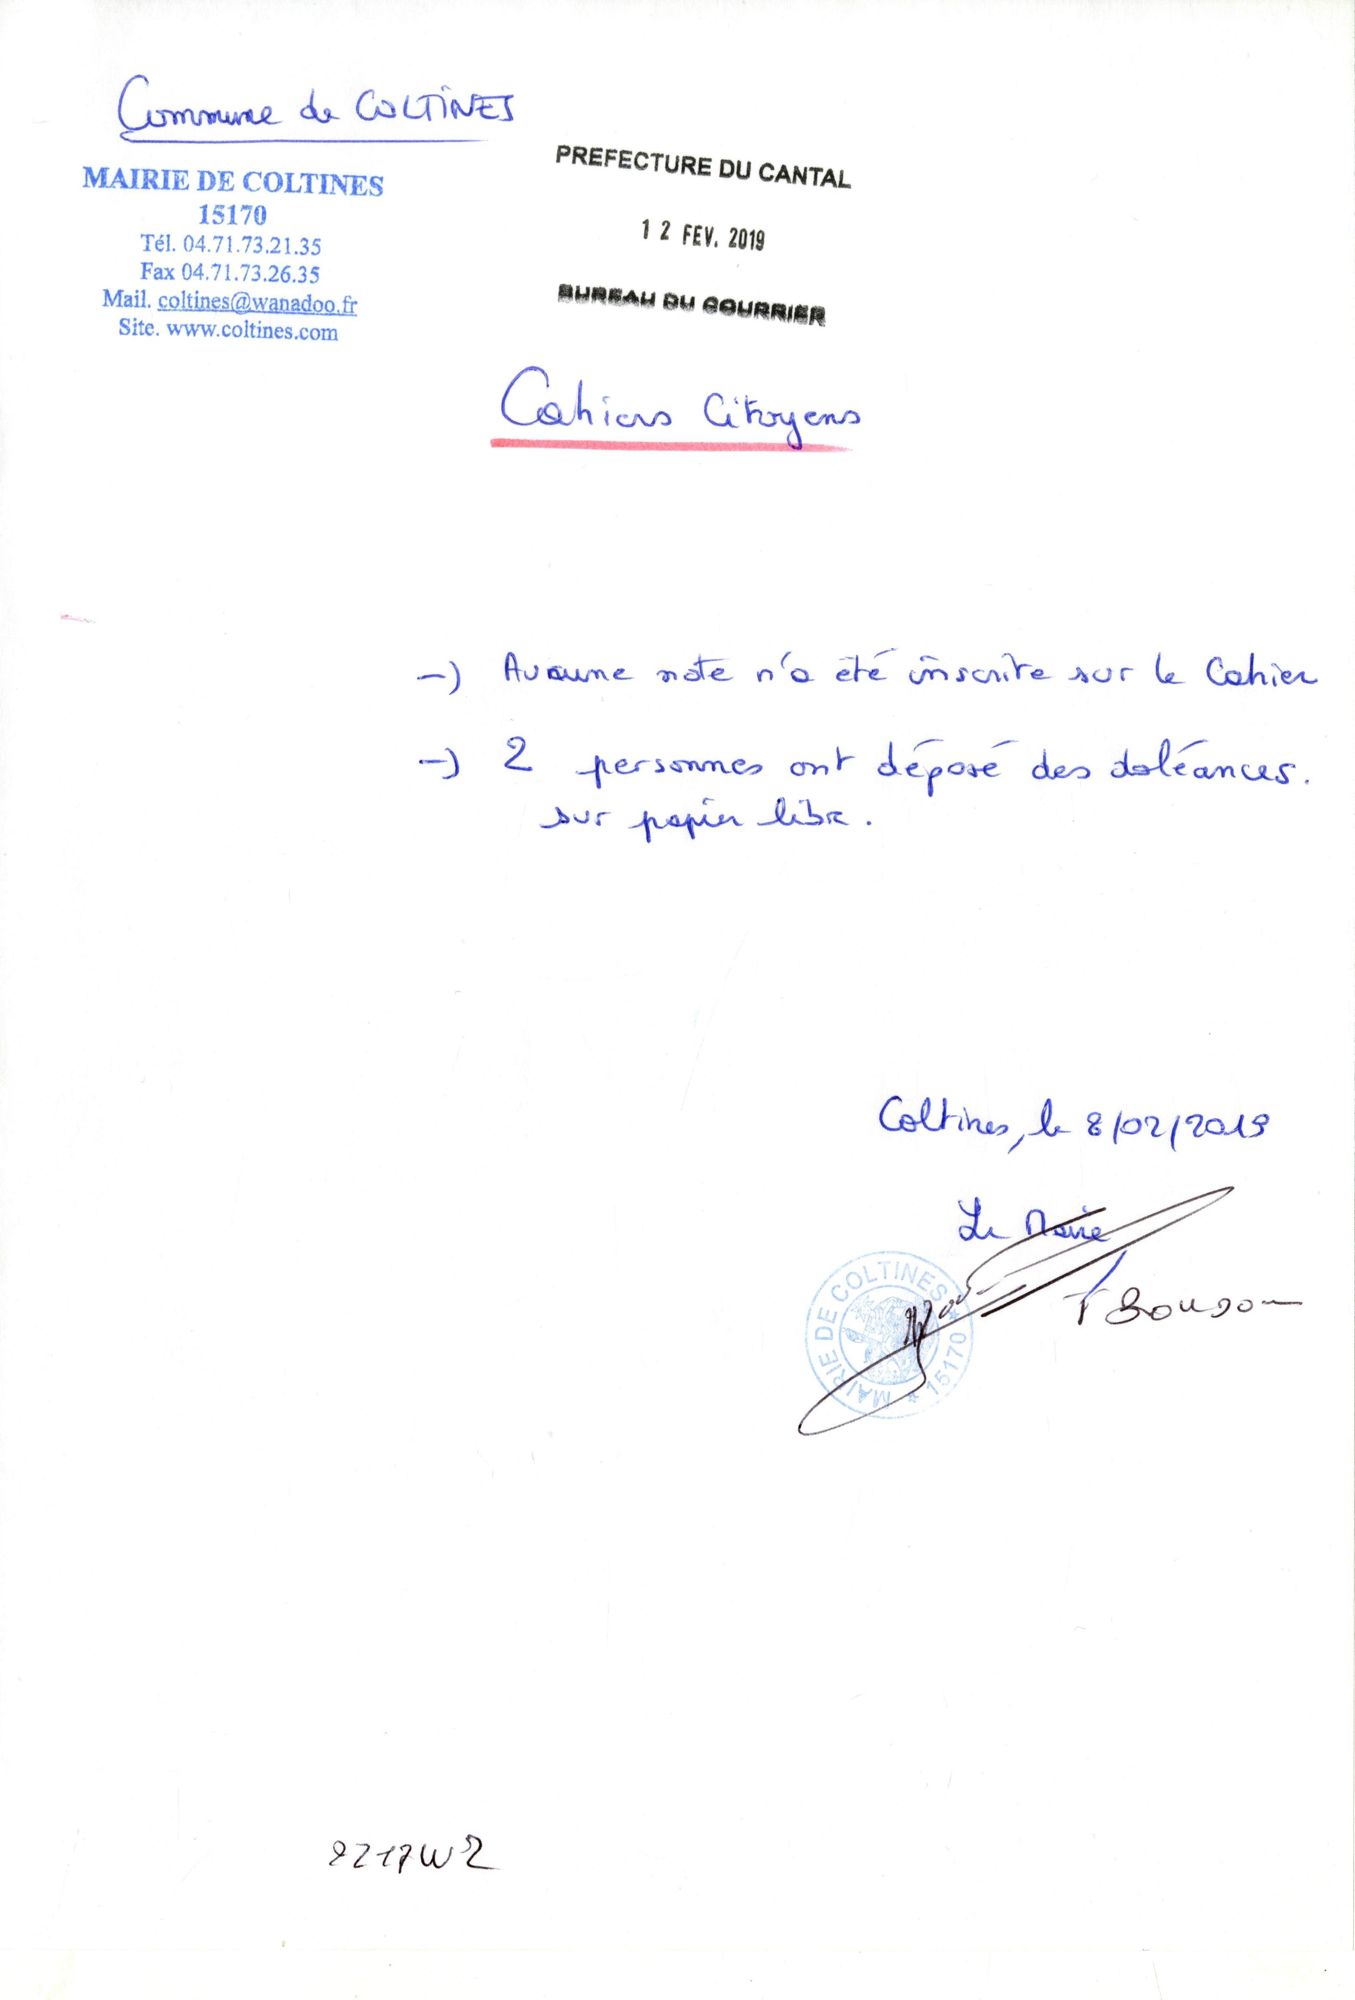 Commune de COLTINES
MAIRIE DE COLTINES
15170
Tél. 04.71.73.21.35
Fax 04.71.73.26.35
Mail. coltines@wanadoo.fr
Site. www.coltines.com
PREFECTURE DU CANTAL
12 FEV. 2019
BUREAU DU COURRIER
Cahiers Citoyens
-) Aucune note n'a été inscrite sur le Cahier
-) 2 personnes ont déposé des doléances.
sur papier libre.
Coltines, le 8/02/2019
Le Maire
MAIRIE DE COLTINES * 15170 *